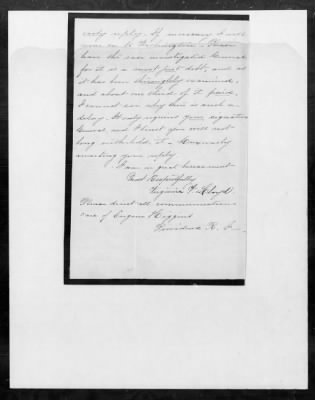 early reply. If necessary I will
come on to Washington. Please
have this case investigated General
for it is a most just debt, and as
it has been thoroughly examined,
and about one third of it paid,
I cannot see why there is such a
delay. It only requires your signature
General, and I trust you will not
long withhold it. Anxiously
awaiting your reply
I am in great bereavement
Most Respectfully
Virginia F. Lloyd.
Please direct all communications
care of Eugene Higgins
Providence R. I.